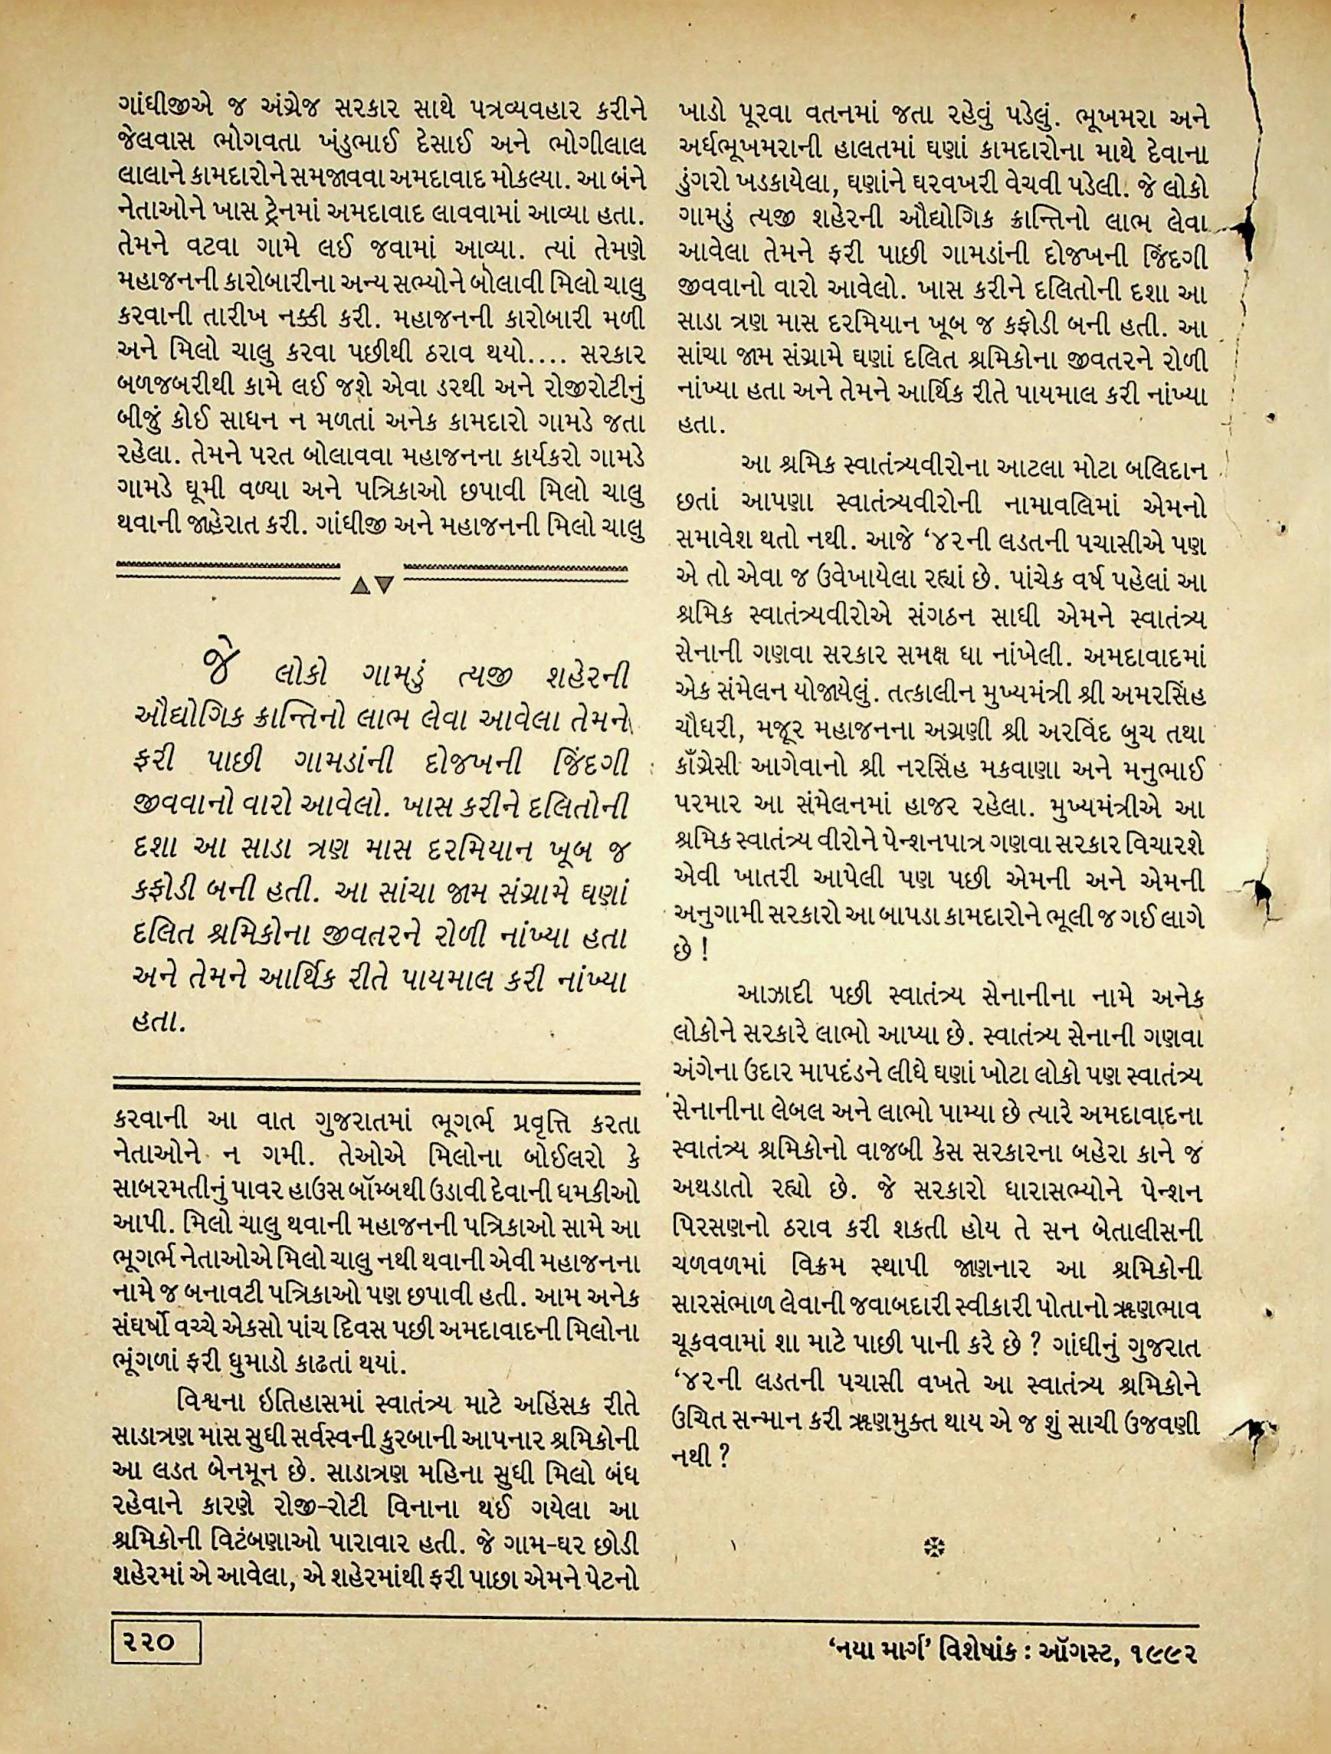 ગાંધીજીએ જ અંગ્રેજ સરકાર સાથે પત્રવ્યવહાર કરીને
જેલવાસ ભોગવતા ખંડુભાઈ દેસાઈ અને ભોગીલાલ
લાલાને કામદારોને સમજાવવા અમદાવાદ મોકલ્યા. આ બંને
નેતાઓને ખાસ ટ્રેનમાં અમદાવાદ લાવવામાં આવ્યા હતા.
તેમને વટવા ગામે લઈ જવામાં આવ્યા. ત્યાં તેમણે
મહાજનની કારોબારીના અન્ય સભ્યોને બોલાવી મિલો ચાલુ
કરવાની તારીખ નક્કી કરી. મહાજનની કારોબારી મળી
અને મિલો ચાલુ કરવા પછીથી ઠરાવ થયો.... સરકાર
બળજબરીથી કામે લઈ જશે એવા ડરથી અને રોજીરોટીનું
બીજું કોઈ સાધન ન મળતાં અનેક કામદારો ગામડે જતા
રહેલા. તેમને પરત બોલાવવા મહાજનના કાર્યકરો ગામડે
ગામડે ઘૂમી વળ્યા અને પત્રિકાઓ છપાવી મિલો ચાલુ
થવાની જાહેરાત કરી. ગાંધીજી અને મહાજનની મિલો ચાલુ
જે લોકો ગામડું ત્યજી શહેરની
ઔદ્યોગિક ક્રાન્તિનો લાભ લેવા આવેલા તેમને
ફરી પાછી ગામડાંની દોજખની જિંદગી
જીવવાનો વારો આવેલો. ખાસ કરીને દલિતોની
દશા આ સાડા ત્રણ માસ દરમિયાન ખૂબ જ
કફોડી બની હતી. આ સાંચા જામ સંગ્રામે ઘણાં
દલિત શ્રમિકોના જીવતરને રોળી નાંખ્યા હતા
અને તેમને આર્થિક રીતે પાયમાલ કરી નાંખ્યા
હતા.
કરવાની આ વાત ગુજરાતમાં ભૂગર્ભ પ્રવૃત્તિ કરતા
નેતાઓને ન ગમી. તેઓએ મિલોના બોઈલરો કે
સાબરમતીનું પાવર હાઉસ બૉમ્બથી ઉડાવી દેવાની ધમકીઓ
આપી. મિલો ચાલુ થવાની મહાજનની પત્રિકાઓ સામે આ
ભૂગર્ભ નેતાઓએ મિલો ચાલુ નથી થવાની એવી મહાજનના
નામે જ બનાવટી પત્રિકાઓ પણ છપાવી હતી. આમ અનેક
સંઘર્ષો વચ્ચે એકસો પાંચ દિવસ પછી અમદાવાદની મિલોના
ભૂંગળાં ફરી ધુમાડો કાઢતાં થયાં.
વિશ્વના ઇતિહાસમાં સ્વાતંત્ર્ય માટે અહિંસક રીતે
સાડાત્રણ માસ સુધી સર્વસ્વની કુરબાની આપનાર શ્રમિકોની
આ લડત બેનમૂન છે. સાડાત્રણ મહિના સુધી મિલો બંધ
રહેવાને કારણે રોજી-રોટી વિનાના થઈ ગયેલા આ
શ્રમિકોની વિટંબણાઓ પારાવાર હતી. જે ગામ-ઘર છોડી
શહેરમાં એ આવેલા, એ શહેરમાંથી ફરી પાછા એમને પેટનો
ખાડો પૂરવા વતનમાં જતા રહેવું પડેલું. ભૂખમરા અને
અર્ધભૂખમરાની હાલતમાં ઘણાં કામદારોના માથે દેવાના
ડુંગરો ખડકાયેલા, ઘણાંને ઘરવખરી વેચવી પડેલી. જે લોકો
ગામડું ત્યજી શહેરની ઔદ્યોગિક ક્રાન્તિનો લાભ લેવા
આવેલા તેમને ફરી પાછી ગામડાંની દોજખની જિંદગી
જીવવાનો વારો આવેલો. ખાસ કરીને દલિતોની દશા આ
સાડા ત્રણ માસ દરમિયાન ખૂબ જ કફોડી બની હતી. આ
સાંચા જામ સંગ્રામે ઘણાં દલિત શ્રમિકોના જીવતરને રોળી
નાંખ્યા હતા અને તેમને આર્થિક રીતે પાયમાલ કરી નાંખ્યા
હતા.
આ શ્રમિક સ્વાતંત્ર્યવીરોના આટલા મોટા બલિદાન
છતાં આપણા સ્વાતંત્ર્યવીરોની નામાવલિમાં એમનો
સમાવેશ થતો નથી. આજે ‘૪૨ની લડતની પચાસીએ પણ
એ તો એવા જ ઉવેખાયેલા રહ્યાં છે. પાંચેક વર્ષ પહેલાં આ
શ્રમિક સ્વાતંત્ર્યવીરોએ સંગઠન સાધી એમને સ્વાતંત્ર્ય
સેનાની ગણવા સરકાર સમક્ષ ધા નાંખેલી. અમદાવાદમાં
એક સંમેલન યોજાયેલું. તત્કાલીન મુખ્યમંત્રી શ્રી અમરસિંહ
ચૌધરી, મજૂર મહાજનના અગ્રણી શ્રી અરવિંદ બુચ તથા
કૉંગ્રેસી આગેવાનો શ્રી નરસિંહ મકવાણા અને મનુભાઈ
પરમાર આ સંમેલનમાં હાજર રહેલા. મુખ્યમંત્રીએ આ
શ્રમિક સ્વાતંત્ર્ય વીરોને પેન્શનપાત્ર ગણવા સરકાર વિચારશે
એવી ખાતરી આપેલી પણ પછી એમની અને એમની
અનુગામી સરકારો આ બાપડા કામદારોને ભૂલી જ ગઈ લાગે
છે !
આઝાદી પછી સ્વાતંત્ર્ય સેનાનીના નામે અનેક
લોકોને સરકારે લાભો આપ્યા છે. સ્વાતંત્ર્ય સેનાની ગણવા
અંગેના ઉદાર માપદંડને લીધે ઘણાં ખોટા લોકો પણ સ્વાતંત્ર્ય
સેનાનીના લેબલ અને લાભો પામ્યા છે ત્યારે અમદાવાદના
સ્વાતંત્ર્ય શ્રમિકોનો વાજબી કેસ સરકારના બહેરા કાને જ
અથડાતો રહ્યો છે. જે સરકારો ધારાસભ્યોને પેન્શન
પિરસણનો ઠરાવ કરી શકતી હોય તે સન બેતાલીસની
ચળવળમાં વિક્રમ સ્થાપી જાણનાર આ શ્રમિકોની
સારસંભાળ લેવાની જવાબદારી સ્વીકારી પોતાનો ઋણભાવ
ચૂકવવામાં શા માટે પાછી પાની કરે છે ? ગાંધીનું ગુજરાત
‘૪૨ની લડતની પચાસી વખતે આ સ્વાતંત્ર્ય શ્રમિકોને
ઉચિત સન્માન કરી ઋણમુક્ત થાય એ જ શું સાચી ઉજવણી
નથી ?
૨૨૦
‘નયા માર્ગ’ વિશેષાંક : ઑગસ્ટ, ૧૯૯૨